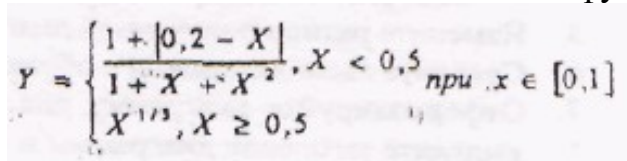 Y = { 1 + |0,2 − X| / 1 + X + X², X < 0,5
X^-1/3, X ≥ 0,5
при x ∈ [0,1]